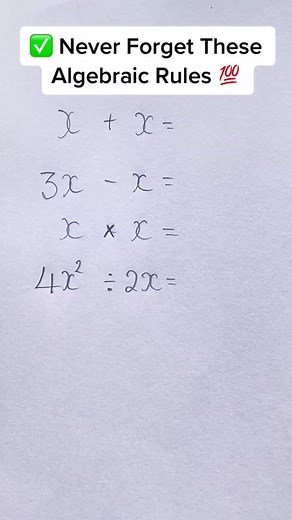 ✅ Never Forget These
Algebraic Rules 💯
x + x =
3x - x =
x × x =
4x² ÷ 2x =